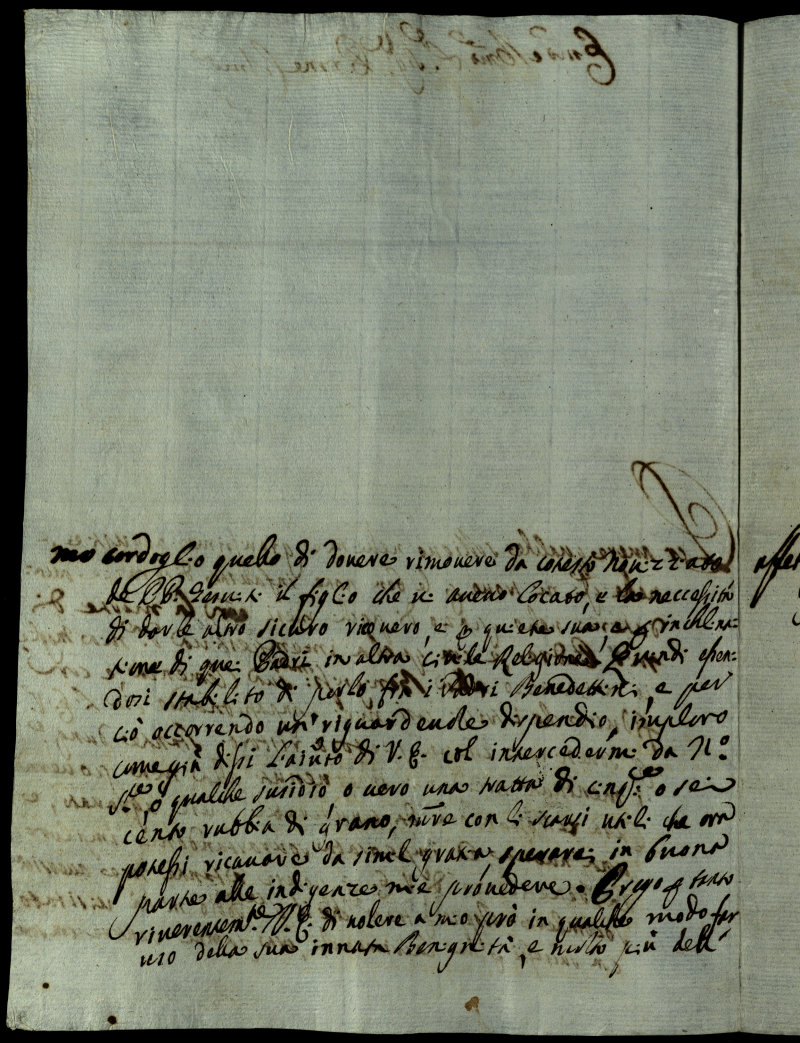 mio cordoglio quello di dovere rimovere da cotesto Noviziato
de PP. Gesuiti il figlio che vi avevo locato, e la neccessità
di darle altro sicuro ricovero, e p quiete sua, e p inclina
tione di que Padri in altra Civile Religione. Quindi essen
dosi stabilito di porlo fra i Padri Benedettini, e per
ciò occorrendo un riguardevole dispendio, imploro
come già dissi l'aiuto di V. E. col intercedermi da N.º
S.re o qualche susidio o vero una tratta di cinq.e o sei
cento rubbia di grano, mentre con li scarsi utili che ora
potessi ricavare da simil grazia sperarei in buona
parte alle indigenze mie provedere. Prego p tanto
riverentem.te V. E. di volere a mio prò in qualche modo far
uso della sua innata Benignità, e molto più dell'